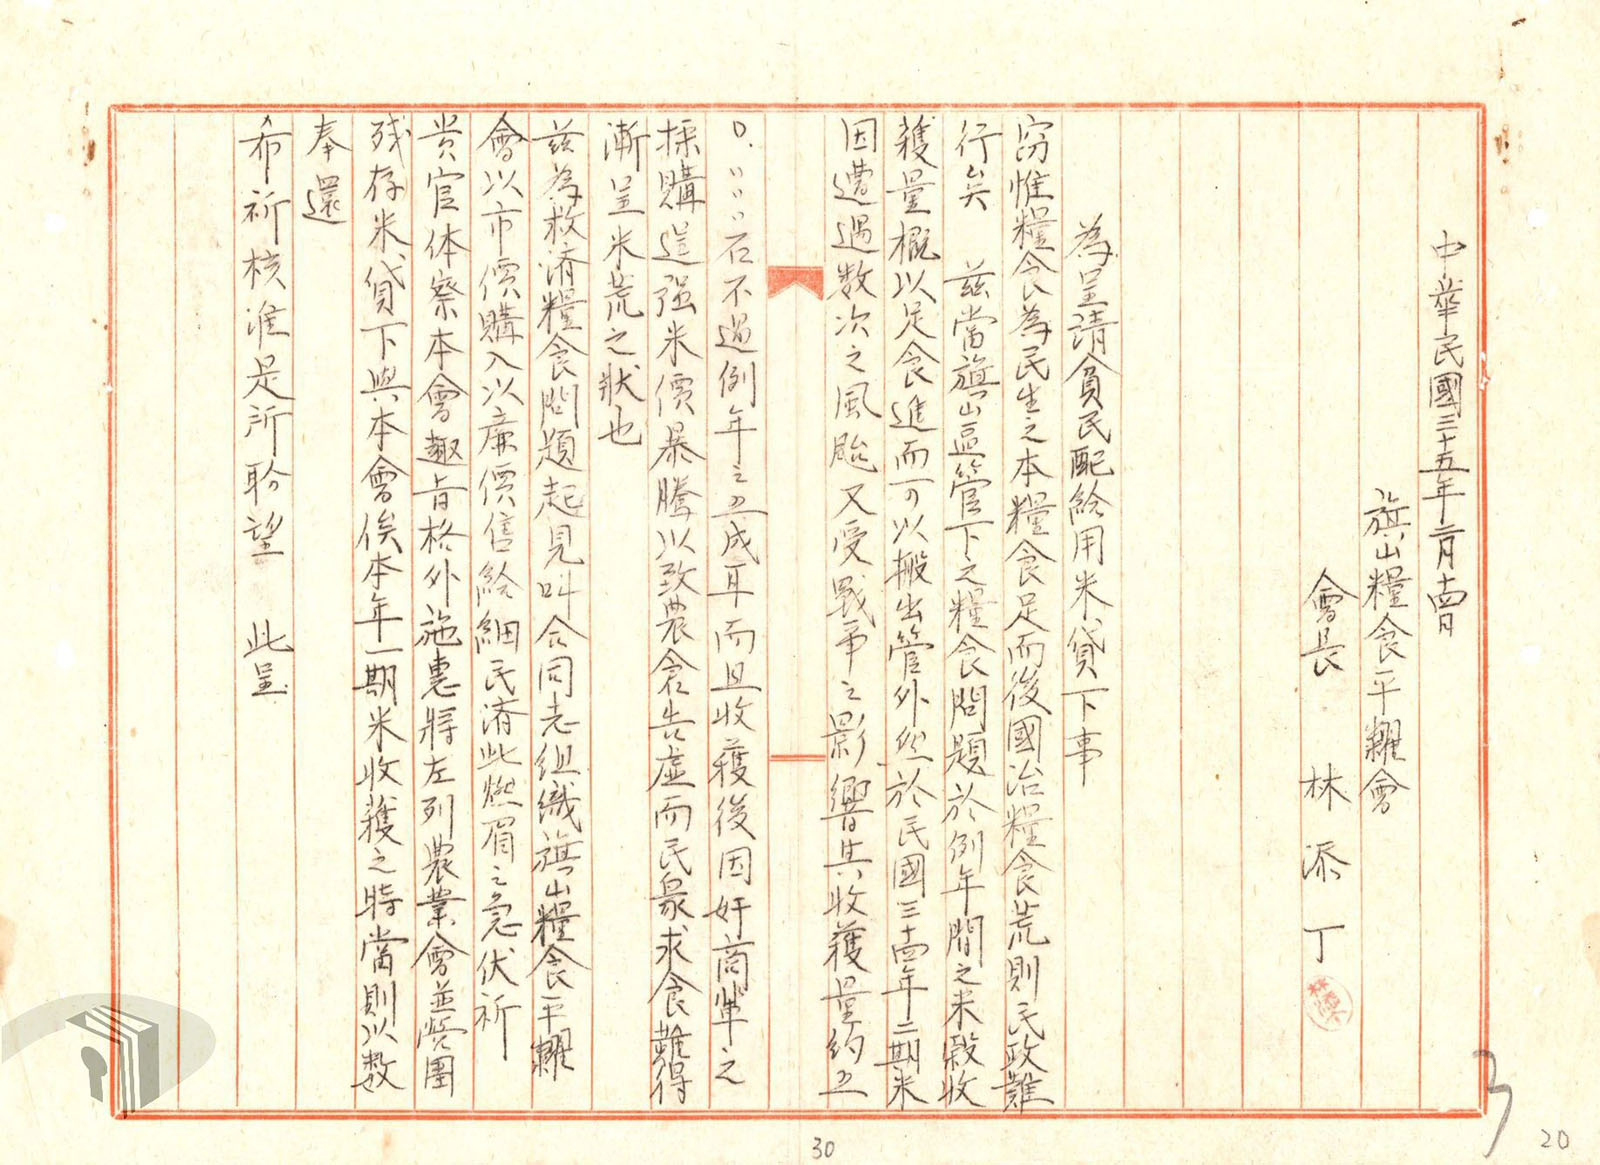 中華民國三十五年二月十四日
旗山糧食平糶會
會長 林添丁
為呈請貧民配給用米貸下事
窃惟糧食為民生之本糧食足而後國治糧食荒則民政難
行矣 茲當旗山區管下之糧食問題於例年間之米穀收
穫量概以足食進而可以搬出管外然於民國三十四年二期米
因遭遇数次之風颱又受戰爭之影響其收獲量約五
0.000石不過例年之五成耳而且收獲後因奸商輩之
採購這强米價暴騰以致農倉告虛而民衆求食難得
漸呈米荒之狀也
茲為救済糧食問題起見叫合同志組織旗山糧食平糶
會以市價購入以廉價售給細民済此燃眉之急伏祈
貴官体察本會趣旨格外施惠將左列農業會並營團
残存米貸下與本會俟本年一期米收獲之時當則以数
奉還
希祈核准是所盼望 此呈
30
20